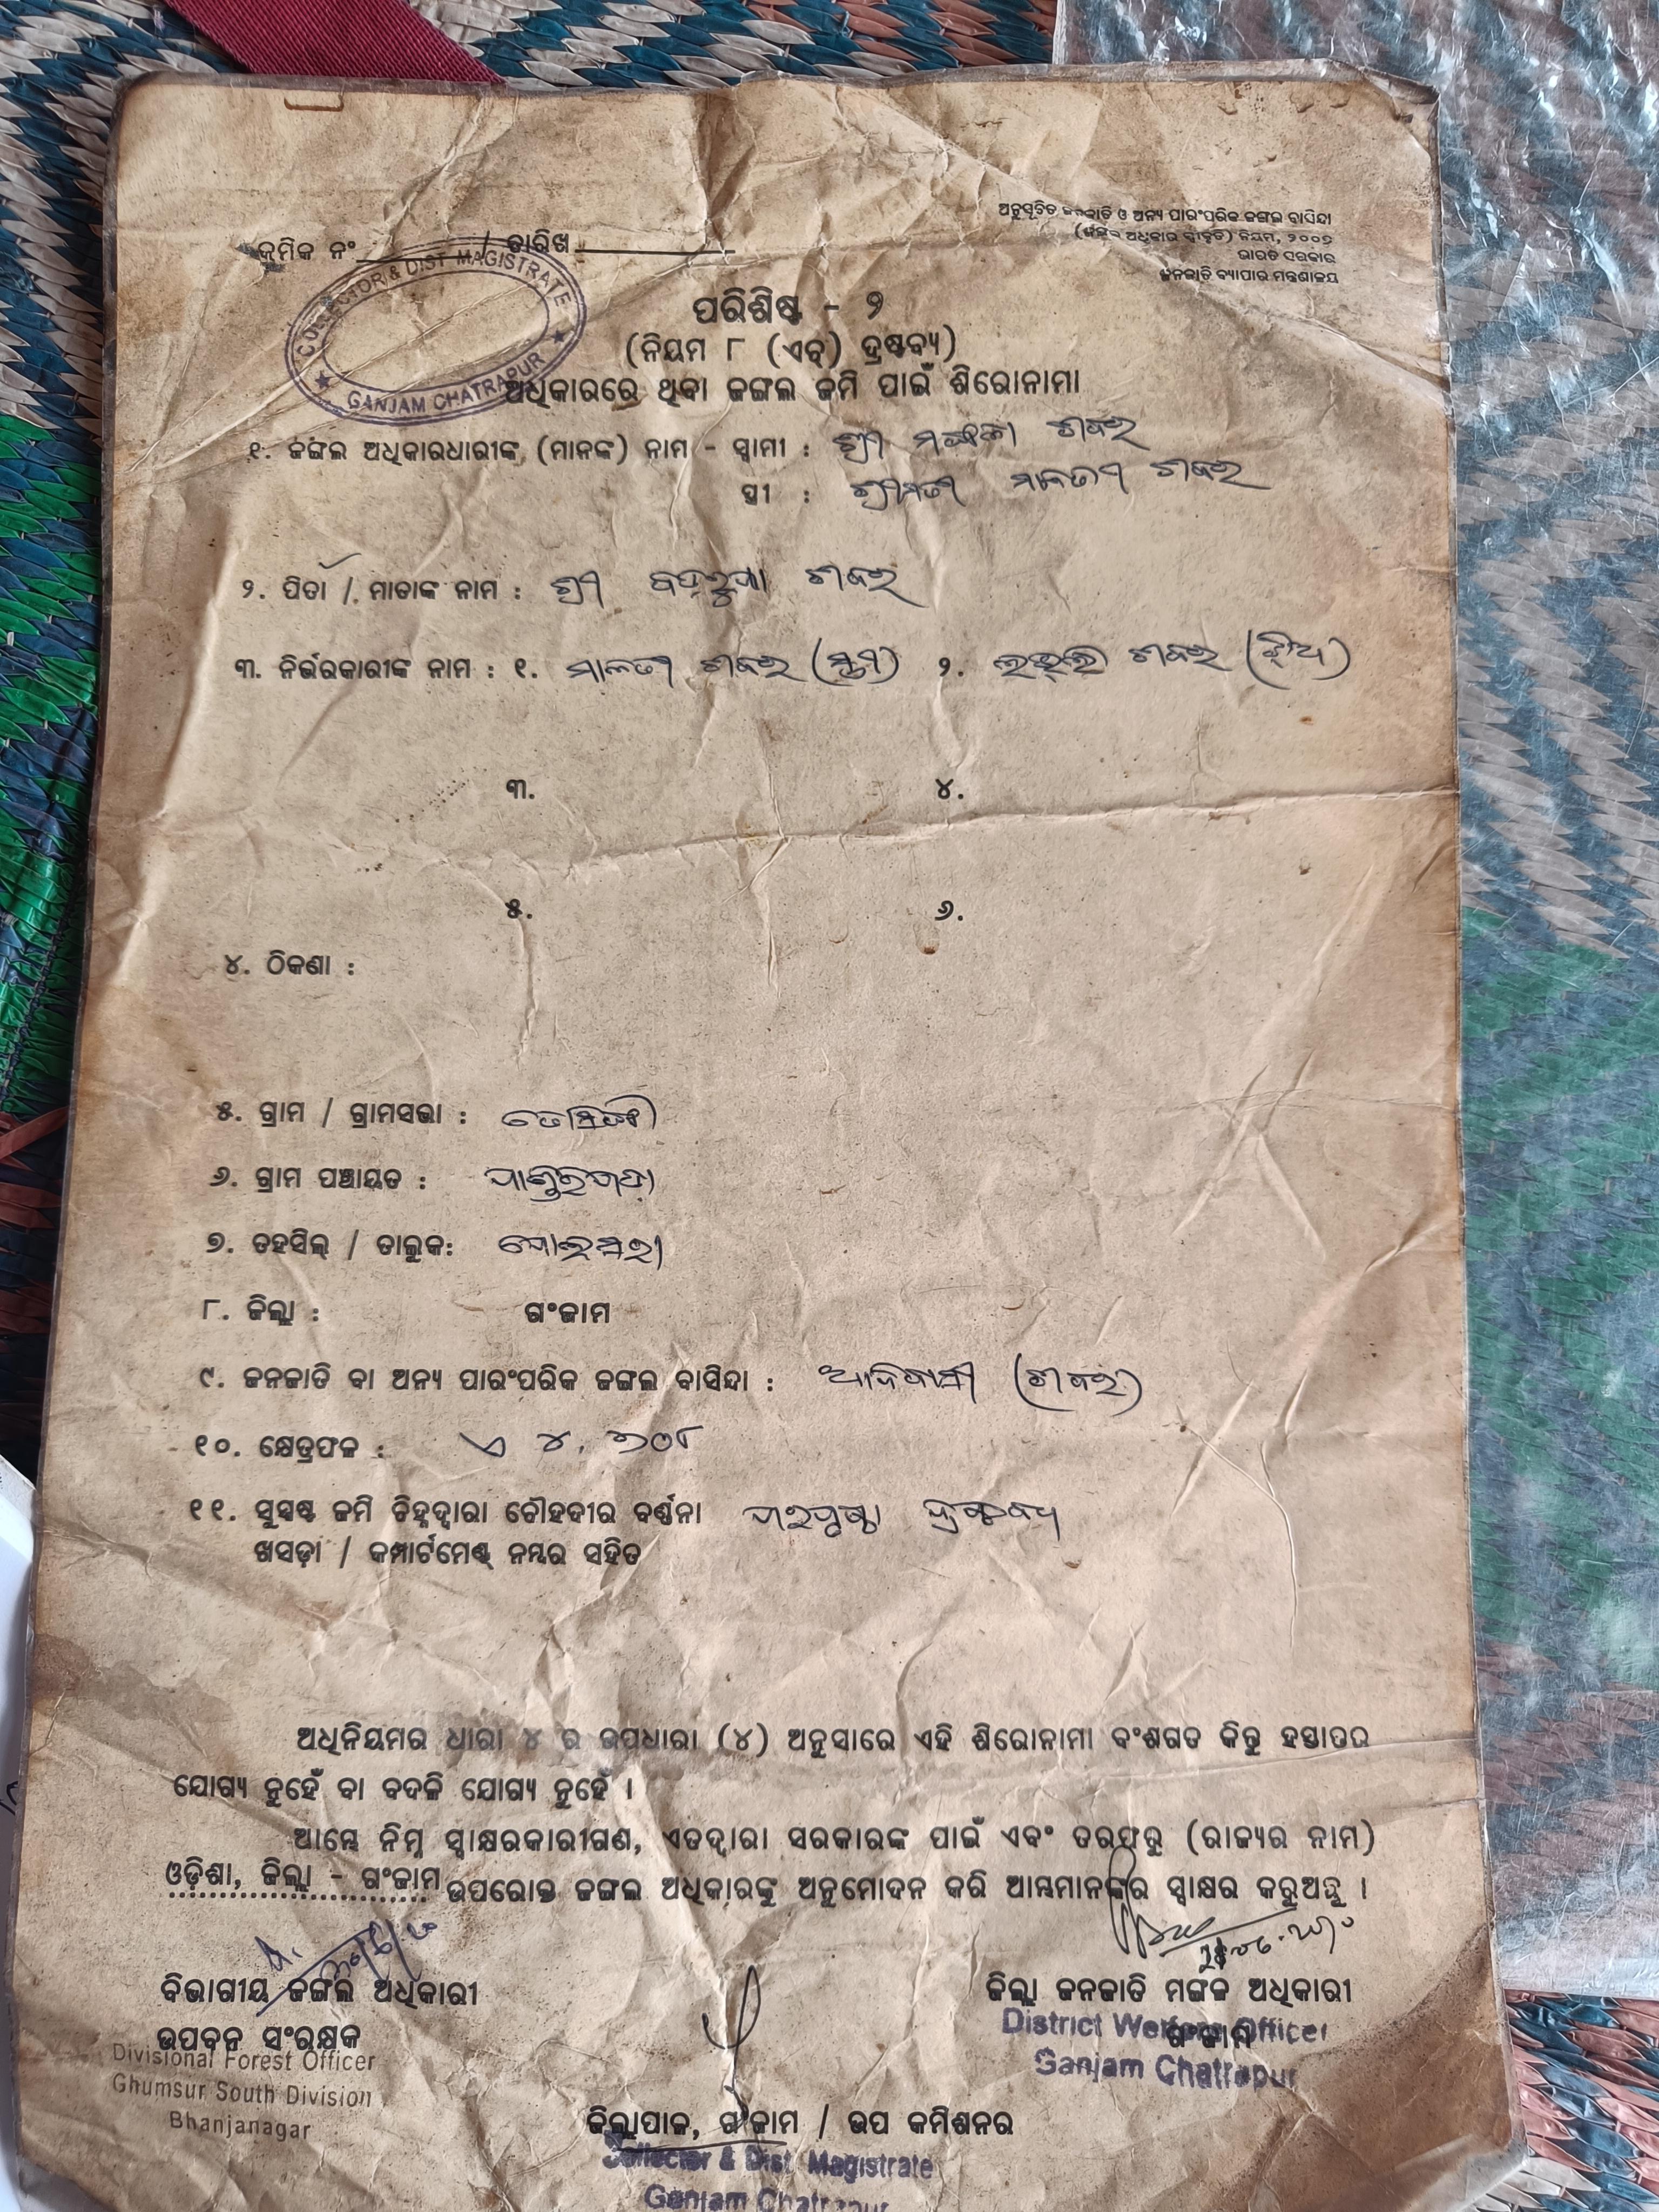 ଅନୁସୂଚିତ ଜନଜାତି ଓ ଅନ୍ୟ ପାରଂପରିକ ଜଙ୍ଗଲ ବାସିନ୍ଦା
(ଜଙ୍ଗଲ ଅଧିକାର ସ୍ୱୀକୃତି) ନିୟମ, ୨୦୦୭
ଭାରତ ସରକାର
ଜନଜାତି ବ୍ୟାପାର ମନ୍ତ୍ରଣାଳୟ
କ୍ରମିକ ନଂ / ତାରିଖ
COLLECTOR & DIST MAGISTRATE
GANJAM CHATRAPUR
ପରିଶିଷ୍ଟ - ୨
(ନିୟମ ୮ (ଏଚ୍) ଦ୍ରଷ୍ଟବ୍ୟ)
ଅଧିକାରରେ ଥିବା ଜଙ୍ଗଲ ଜମି ପାଇଁ ଶିରୋନାମା
୧. ଜଙ୍ଗଲ ଅଧିକାରଧାରୀଙ୍କ (ମାନଙ୍କ) ନାମ - ସ୍ୱାମୀ : ଶ୍ରୀ ଶବର
ସ୍ତ୍ରୀ : ଶ୍ରୀମତୀ ମାଳତୀ ଶବର
୨. ପିତା / ମାତାଙ୍କ ନାମ : ଶ୍ରୀ ଶବର
୩. ନିର୍ଭରକାରୀଙ୍କ ନାମ : ୧. ମାଳତୀ ଶବର (ସ୍ତ୍ରୀ) ୨. ଶବର (ଝିଅ)
୩. ୪.
୫. ୬.
୪. ଠିକଣା :
୫. ଗ୍ରାମ / ଗ୍ରାମସଭା :
୬. ଗ୍ରାମ ପଞ୍ଚାୟତ :
୭. ତହସିଲ୍ / ତାଲୁକ:
୮. ଜିଲ୍ଲା : ଗଂଜାମ
୯. ଜନଜାତି ବା ଅନ୍ୟ ପାରଂପରିକ ଜଙ୍ଗଲ ବାସିନ୍ଦା : ଆଦିବାସୀ (ଶବର)
୧୦. କ୍ଷେତ୍ରଫଳ : ଏ ୪.
୧୧. ସୁସ୍ପଷ୍ଟ ଜମି ଚିହ୍ନଦ୍ୱାରା ଚୌହଦୀର ବର୍ଣ୍ଣନା ପରପୃଷ୍ଠା ଦ୍ରଷ୍ଟବ୍ୟ
ଖସଡ଼ା / କମ୍ପାର୍ଟମେଣ୍ଟ୍ ନମ୍ବର ସହିତ
ଅଧିନିୟମର ଧାରା ୪ ର ଉପଧାରା (୪) ଅନୁସାରେ ଏହି ଶିରୋନାମା ବଂଶଗତ କିନ୍ତୁ ହସ୍ତାନ୍ତର
ଯୋଗ୍ୟ ନୁହେଁ ବା ବଦଳି ଯୋଗ୍ୟ ନୁହେଁ ।
ଆମ୍ଭେ ନିମ୍ନ ସ୍ୱାକ୍ଷରକାରୀଗଣ, ଏତଦ୍ୱାରା ସରକାରଙ୍କ ପାଇଁ ଏବଂ ତରଫରୁ (ରାଜ୍ୟର ନାମ)
ଓଡ଼ିଶା, ଜିଲ୍ଲା - ଗଂଜାମ ଉପରୋକ୍ତ ଜଙ୍ଗଲ ଅଧିକାରଙ୍କୁ ଅନୁମୋଦନ କରି ଆମ୍ଭମାନଙ୍କର ସ୍ୱାକ୍ଷର କରୁଅଛୁ ।
ବିଭାଗୀୟ ଜଙ୍ଗଲ ଅଧିକାରୀ
ଉପବନ ସଂରକ୍ଷକ
Divisional Forest Officer
Ghumsur South Division
Bhanjanagar
ଜିଲ୍ଲା ଜନଜାତି ମଙ୍ଗଳ ଅଧିକାରୀ
ଗଂଜାମ
District Welfare Officer
Ganjam Chatrapur
ଜିଲ୍ଲାପାଳ, ଗଂଜାମ / ଉପ କମିଶନର
Collector & Dist. Magistrate
Ganjam Chatrapur